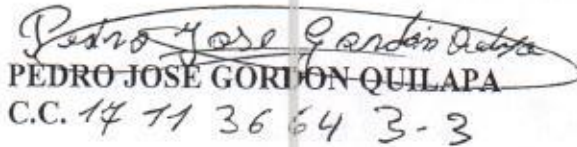 Pedro Jose Gordón Quilapa
PEDRO JOSÉ GORDON QUILAPA
C.C. 17 11 36 64 3-3